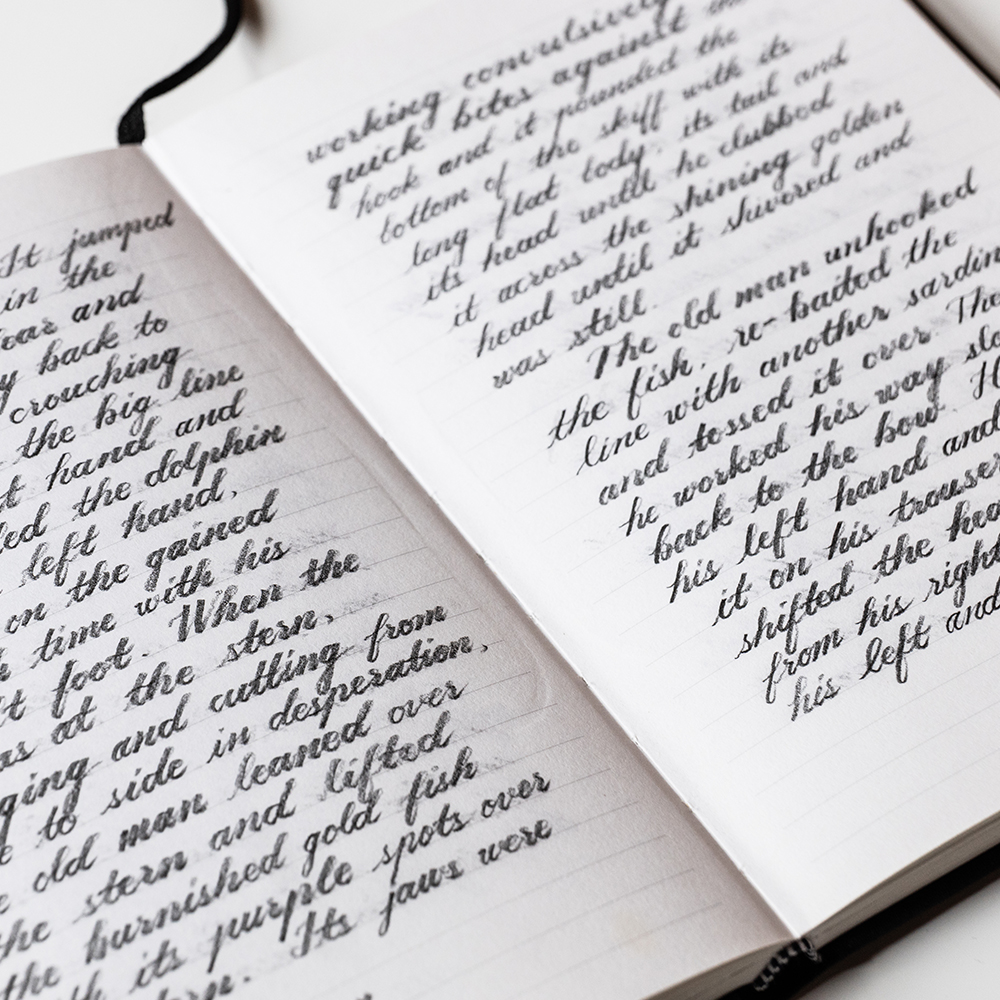 It jumped
in the
and
back to
crouching
the big line
hand and
the dolphin
left hand,
on the gained
time with his
foot. When the
as at the stern,
and cutting from
to side in desperation,
old man leaned over
the stern and lifted
the burnished gold fish
its purple spots over
Its jaws were
working convulsively
quick bites against
hook and it pounded the
bottom of the skiff with its
long flat body, its tail and
its head until he clubbed
it across the shining golden
head until it shivered and
was still.
The old man unhooked
the fish, re-baited the
line with another
and tossed it over.
he worked his way
back to the bow.
his left hand and
it on his
shifted the
from his right
his left and